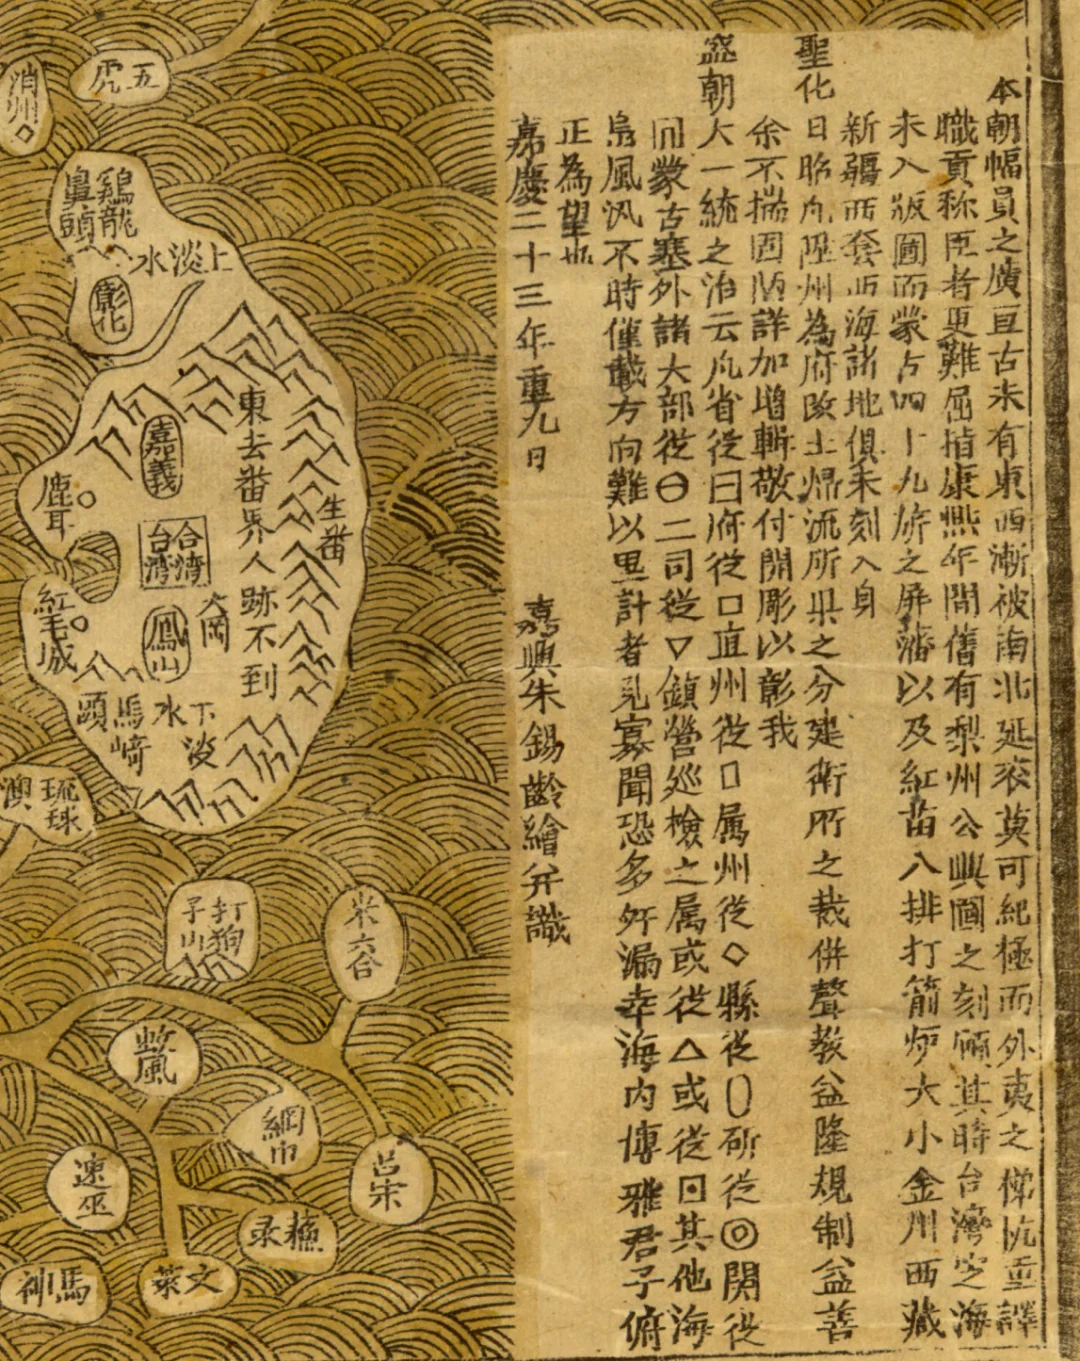 本朝幅員之廣亘古未有東西漸被南北延袤莫可紀極而外夷之梯航重譯
職貢称臣者更難屈指康熙年間舊有梨州公輿圖之刻顧其時台灣定海
未入版圖而蒙古四十九旂之屏藩以及紅苗八排打箭炉大小金川西藏
新疆西套西海諸地俱未刻入身
聖化日昭凡陞州為府改土歸流所県之分建衛所之裁併聲教益隆規制益善
余不揣固陋詳加增輯敬付開彫以彰我
盛朝大一統之治云凡省従囗府従口直州従▯属州従◇縣従⬯斫従◎関従
冋蒙古塞外諸大部従⊖二司従▽鎮營巡檢之属或従△或従⊡其他海
島風汎不時僅載方向難以里計者見寡聞恐多舛漏幸海内博雅君子俯
正為望也
嘉慶二十三年重九日 嘉興朱錫齡繪并識
五虎
消州
鷄龍
鼻頭
上淡水
彰化
東去番界人跡不到
生番
嘉義
鹿耳
台湾
台湾
大岡
鳳山
紅毛城
下淡水
馬崎頭
琉球
澳
打狗
子山
米六合
蚊風
網巾
吕宋
速巫
蘇彔
文萊
馬神